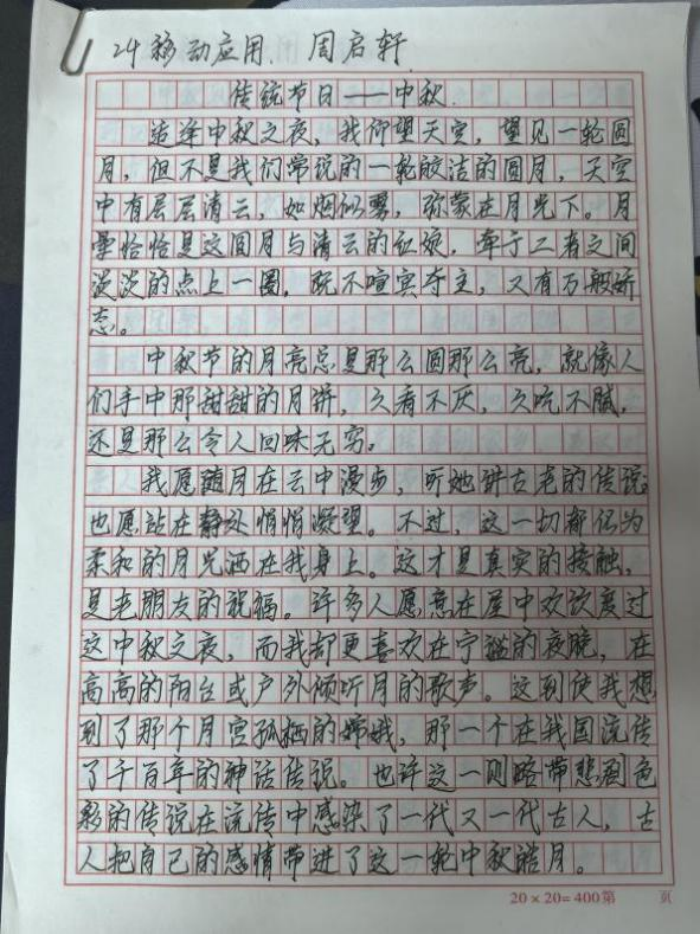 24移动应用 周启轩
传统节日——中秋
适逢中秋之夜，我仰望天空，望见一轮圆
月，但不是我们常说的一轮皎洁的圆月，天空
中有层层清云，如烟似雾，弥蒙在月光下。月
晕恰恰是这圆月与清云的红娘，牵于二者之间
淡淡的点上一圈，既不喧宾夺主，又有万般娇
态。
中秋节的月亮总是那么圆那么亮，就像人
们手中那甜甜的月饼，久看不厌，久吃不腻，
还是那么令人回味无穷。
我愿随月在云中漫步，听她讲古老的传说
也愿站在静处悄悄凝望。不过，这一切都化为
柔和的月光洒在我身上。这才是真实的接触，
是老朋友的祝福。许多人愿意在屋中欢饮度过
这中秋之夜，而我却更喜欢在宁谧的夜晚，在
高高的阳台或户外倾听月的歌声。这到使我想
到了那个月宫孤栖的嫦娥，那一个在我国流传
了千百年的神话传说。也许这一则略带悲剧色
彩的传说在流传中感染了一代又一代古人，古
人把自己的感情带进了这一轮中秋皓月。
20×20=400第 页